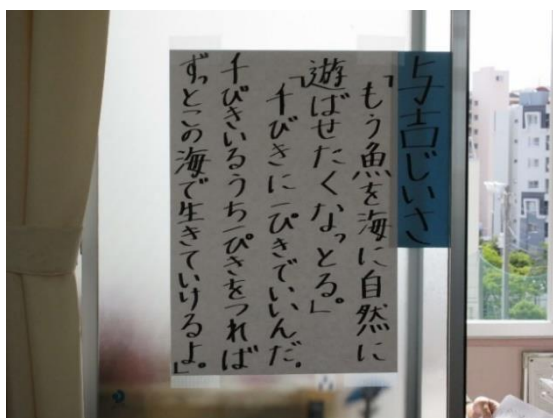 与吉じいさ
「もう魚を海に自然に
遊ばせたくなっとる。」
「千びきに一ぴきでいいんだ。
千びきいるうち一ぴきをつれば
ずっとこの海で生きていけるよ。」